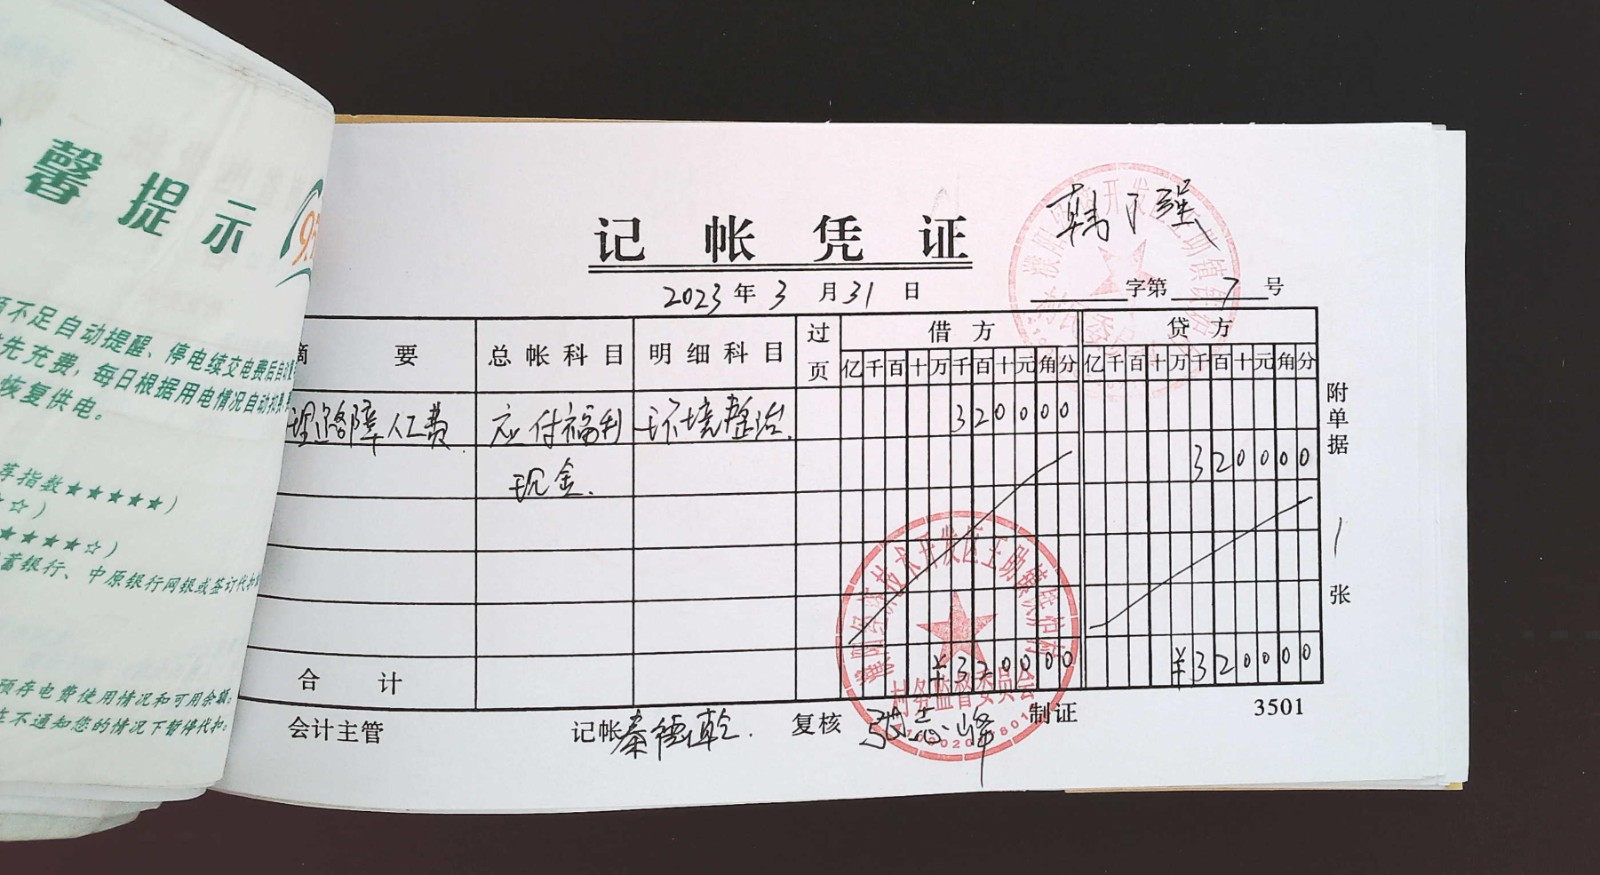 馨提示
不足自动提醒、停电续交电费后自动
先充费，每日根据用电情况自动扣
恢复供电。
荐指数★★★★★）
☆）
★★★★☆）
蓄银行、中原银行网银或签订代扣
预存电费使用情况和可用余额
在不通知您的情况下暂停代扣。
记帐凭证
2023年3月31日
字第7号
摘要 总帐科目 明细科目 过页 借方 贷方
亿千百十万千百十元角分 亿千百十万千百十元角分
路障人工费 应付福利 环境整治 320000
现金 320000
合计 ¥320000 ¥320000
附单据 1 张
会计主管 记帐 秦德乾 复核 张志峰 制证 3501
开发区王助镇
技术开发区王助镇
村务监督委员会